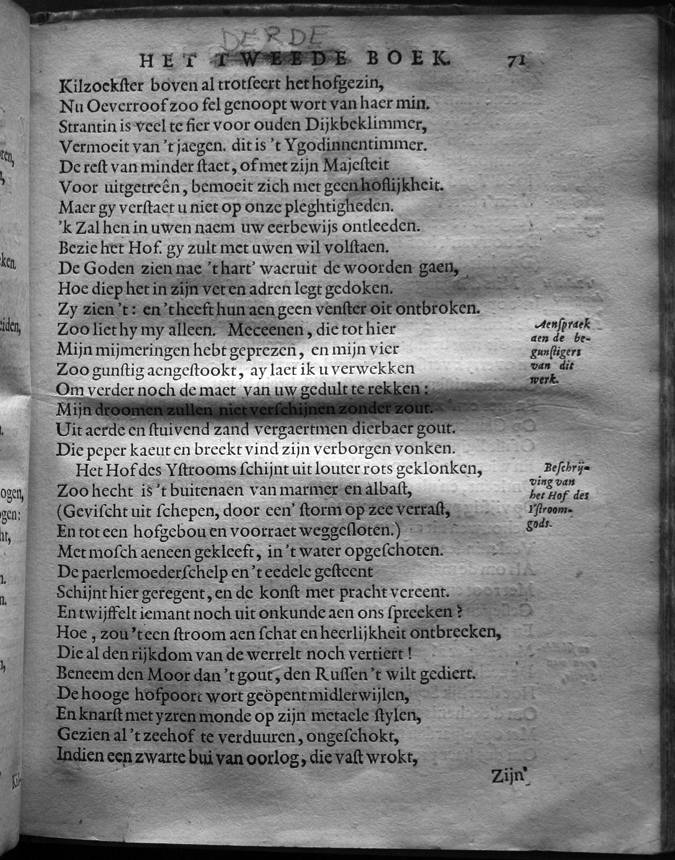 DERDE
HET TWEEDE BOEK. 71
Kilzoekſter boven al trotſeert het hofgezin,
Nu Oeverroof zoo fel genoopt wort van haer min.
Strantin is veel te fier voor ouden Dijkbeklimmer,
Vermoeit van 't jaegen. dit is 't Ygodinnentimmer.
De reſt van minder ſtaet, of met zijn Majeſteit
Voor uitgetreên, bemoeit zich met geen hoflijkheit.
Maer gy verſtaet u niet op onze pleghtigheden.
'k Zal hen in uwen naem uw eerbewijs ontleeden.
Bezie het Hof. gy zult met uwen wil volſtaen.
De Goden zien nae 't hart' waeruit de woorden gaen,
Hoe diep het in zijn vet en adren legt gedoken.
Zy zien 't: en 't heeft hun aen geen venſter oit ontbroken.
Zoo liet hy my alleen. Meceenen, die tot hier
Mijn mijmeringen hebt geprezen, en mijn vier
Zoo gunſtig aengeſtookt, ay laet ik u verwekken
Om verder noch de maet van uw gedult te rekken:
Mijn droomen zullen niet verſchijnen zonder zout.
Uit aerde en ſtuivend zand vergaertmen dierbaer gout.
Die peper kaeut en breekt vind zijn verborgen vonken.
Het Hof des Yſtrooms ſchijnt uit louter rots geklonken,
Zoo hecht is 't buitenaen van marmer en albaſt,
(Geviſcht uit ſchepen, door een' ſtorm op zee verraſt,
En tot een hofgebou en voorraet weggeſloten.)
Met moſch aeneen gekleeft, in 't water opgeſchoten.
De paerlemoederſchelp en 't eedele geſteent
Schijnt hier geregent, en de konſt met pracht vereent.
En twijffelt iemant noch uit onkunde aen ons ſpreeken?
Hoe, zou 't een ſtroom aen ſchat en heerlijkheit ontbreeken,
Die al den rijkdom van de werrelt noch vertiert!
Beneem den Moor dan 't gout, den Ruſſen 't wilt gediert.
De hooge hofpoort wort geöpent midlerwijlen,
En knarſt met yzren monde op zijn metaele ſtylen,
Gezien al 't zeehof te verduuren, ongeſchokt,
Indien een zwarte bui van oorlog, die vaſt wrokt,
Zijn'
Aenſpraek
aen de be-
gunſtigers
van dit
werk.
Beſchrij-
ving van
het Hof des
Yſtroom-
gods.